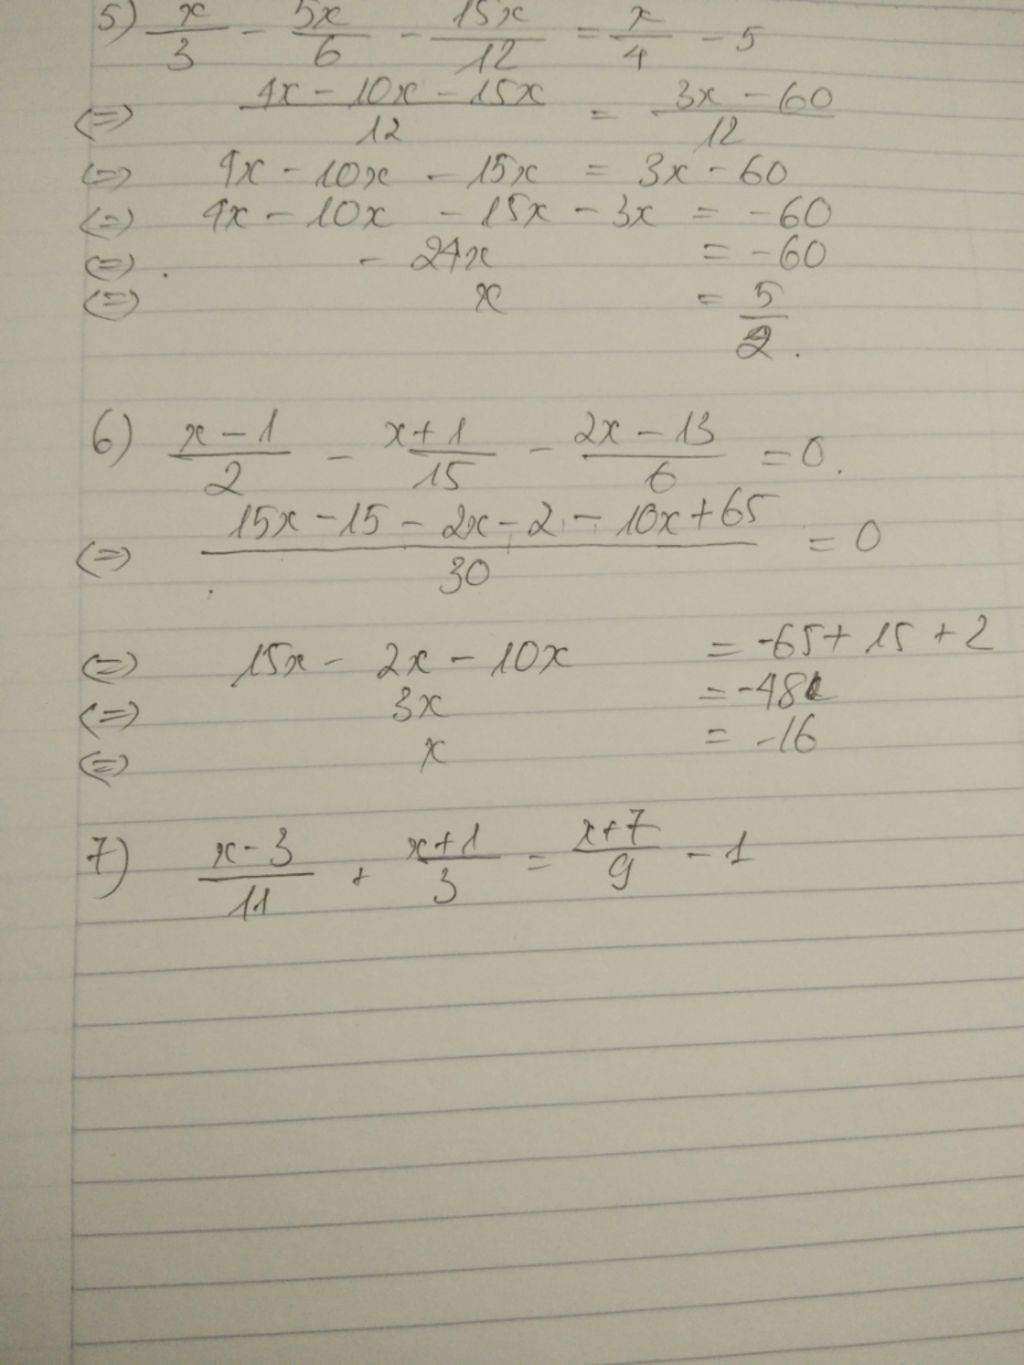 5) x/3 - 5x/6 - 15x/12 = x/4 - 5
(=) (4x - 10x - 15x)/12 = (3x - 60)/12
(=) 4x - 10x - 15x = 3x - 60
(=) 4x - 10x - 15x - 3x = -60
(=) - 24x = -60
(=) x = 5/2.
6) (x - 1)/2 - (x + 1)/15 - (2x - 13)/6 = 0.
(=) (15x - 15 - 2x - 2 - 10x + 65)/30 = 0
(=) 15x - 2x - 10x = -65 + 15 + 2
(=) 3x = -48
(=) x = -16
7) (x - 3)/11 + (x + 1)/3 = (x + 7)/9 - 1